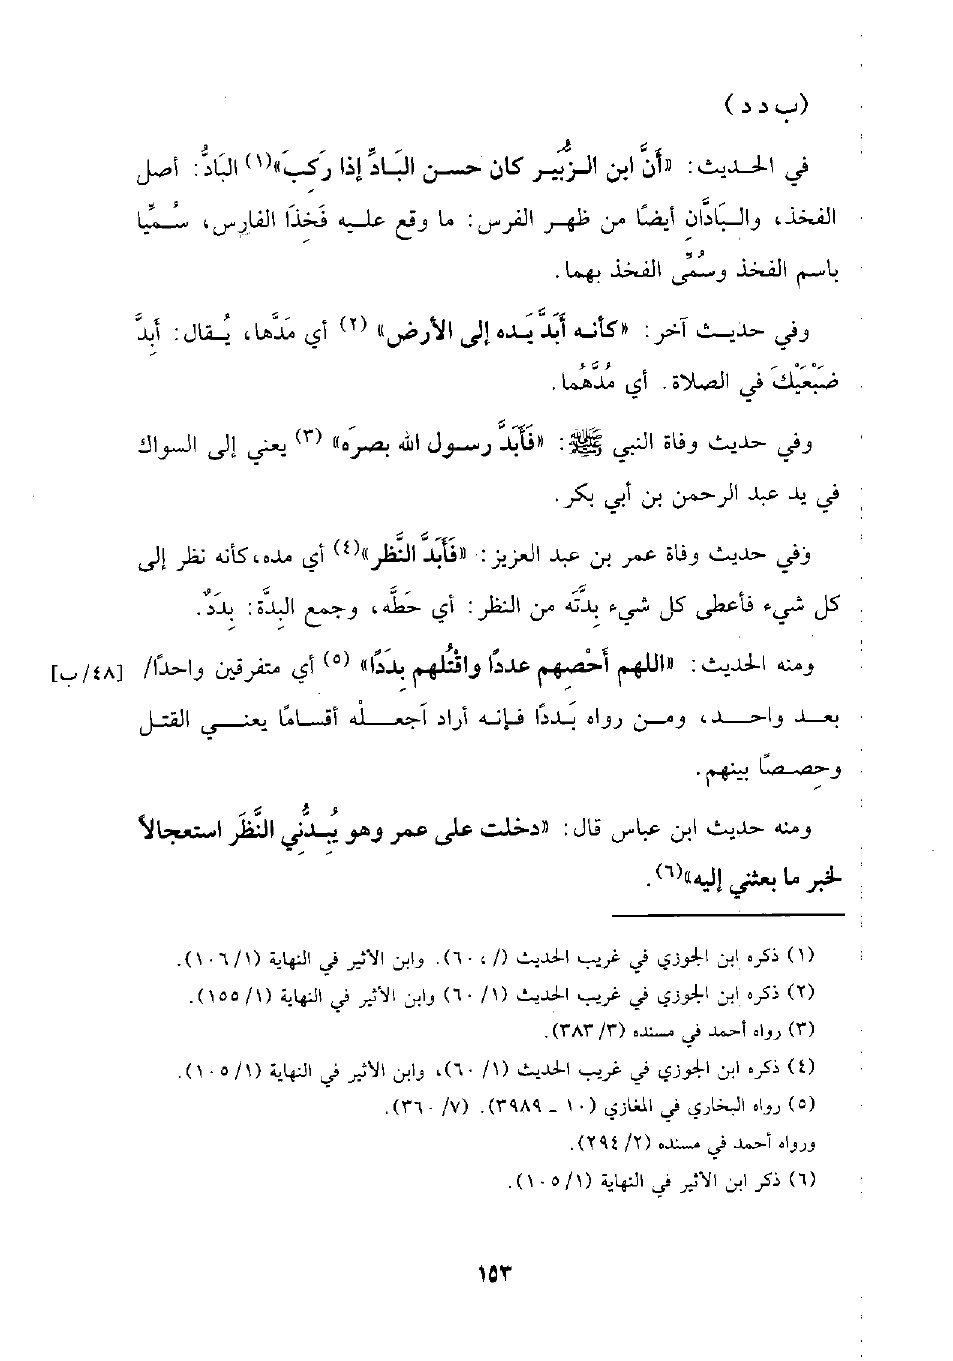 (ب د د)
في الحديث: «أَنَّ ابن الزُّبَير كان حسن البَادِّ إذا رَكِبَ»(١) البَادُّ: أصل
الفخذ، والبَادَّان أيضًا من ظهر الفرس: ما وقع عليه فَخِذَا الفارِس، سُمِّيا
باسم الفخذ وسُمِّى الفخذ بهما.
وفي حديث آخر: «كأنه أَبَدَّ يَده إلى الأرض» (٢) أي مَدَّها، يُقال: أَبِدَّ
ضَبْعَيْكَ في الصلاة. أي مُدَّهُما.
وفي حديث وفاة النبي ﷺ: «فَأَبَدَّ رسول الله بصرَه» (٣) يعني إلى السواك
في يد عبد الرحمن بن أبي بكر.
وفي حديث وفاة عمر بن عبد العزيز: «فَأَبَدَّ النَّظر»(٤) أي مده، كأنه نظر إلى
كل شيء فأعطى كل شيء بِدَّتَه من النظر: أي حَظَّه، وجمع البِدَّة: بِدَدٌ.
ومنه الحديث: «اللهم أَحْصِهم عددًا واقْتُلهم بِدَدًا» (٥) أي متفرقين واحدًا/ [٤٨/ب]
بعد واحد، ومن رواه بَددًا فإنه أراد اَجعلْه أقسامًا يعني القتل
وحِصصًا بينهم.
ومنه حديث ابن عباس قال: «دخلت على عمر وهو يُبِدُّنِي النَّظَر استعجالاً
لخبر ما بعثني إليه»(٦).
(١) ذكره ابن الجوزي في غريب الحديث (/، ٦٠). وابن الأثير في النهاية (١/ ١٠٦).
(٢) ذكره ابن الجوزي في غريب الحديث (١/ ٦٠) وابن الأثير في النهاية (١/ ١٥٥).
(٣) رواه أحمد في مسنده (٣/ ٣٨٣).
(٤) ذكره ابن الجوزي في غريب الحديث (١/ ٦٠)، وابن الأثير في النهاية (١/ ١٠٥).
(٥) رواه البخاري في المغازي (١٠ ـ ٣٩٨٩). (٧/ ٣٦٠).
ورواه أحمد في مسنده (٢/ ٢٩٤).
(٦) ذكر ابن الأثير في النهاية (١/ ١٠٥).
١٥٣